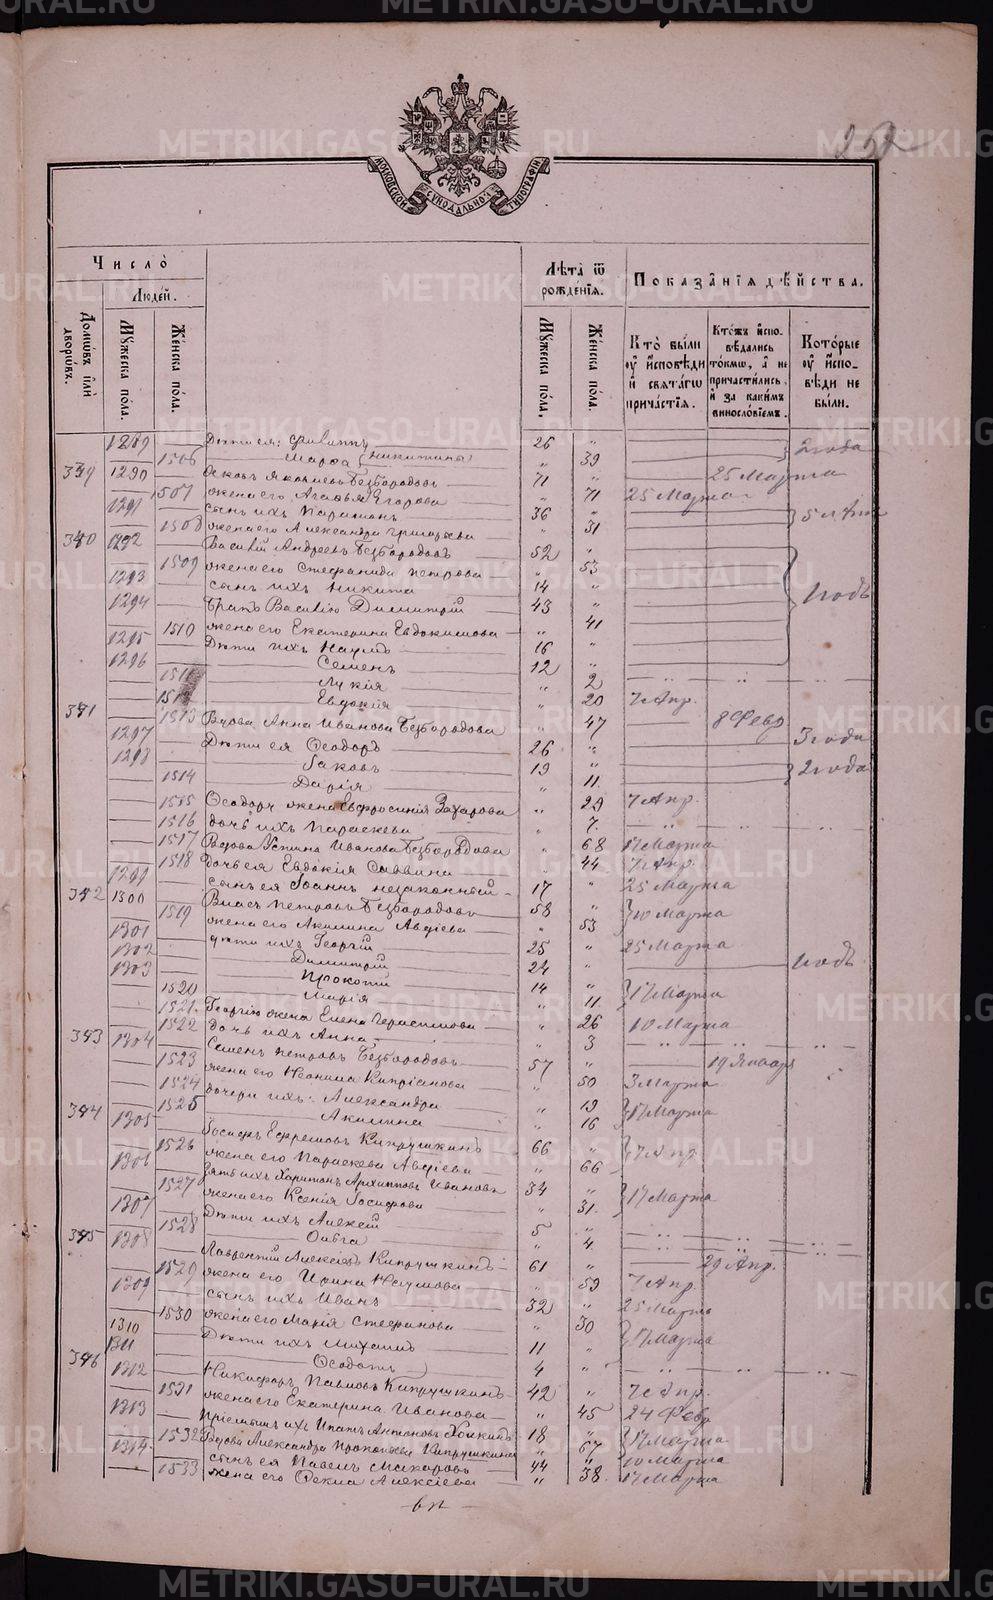 METRIKI.GASO-URAL.RU
252
МОСКОВСКОЙ СѴНОДАЛЬНОЙ ТИПОГРАФІИ
Число̀
Людей.
Домѡвъ или дворѡвъ.
Мꙋжеска пола.
Женска пола.
Лѣта ѿ рожденїѧ.
Мꙋжеска пола.
Женска пола.
Показанїѧ дѣйства.
Кто были оу исповѣди и свѧтагѡ причастїѧ.
Ктожъ исповѣдались токмѡ, а не причастились, и за какимъ винословїемъ.
Которые оу исповѣди не были.
1289 Дѣти ея: Филиппъ 26 " 2 года
1506 Марѳа (Никитины) " 39
339 1290 Іаковъ Яковлевъ Безбородовъ 71 " 25 Марта
1507 жена его Агаѳья Егорова " 71 25 Марта
1291 сынъ ихъ Парамонъ 36 " 5 лѣтъ
1508 жена его Александра Григорьева " 31
340 1292 Василій Андреевъ Безбородовъ 52 "
1509 жена его Стефанида Петрова " 53
1293 сынъ ихъ Никита 14 " 1 годъ
1294 Братъ Василію Димитрій 43 "
1510 жена его Екатерина Евдокимова " 41
1295 Дѣти ихъ Наумъ 16 "
1296 Семенъ 12 "
1511 Лукія " 2
1512 Евдокія " 20 7 Апр.
341 1513 Вдова Анна Иванова Безбородова " 47 8 Февр
1297 Дѣти ея Ѳеодоръ 26 " 3 года
1298 Іаковъ 19 " 2 года
1514 Дарія " 11
1515 Ѳеодору жена Евфросинія Захарова " 29 7 Апр.
1516 дочь ихъ Параскева " 7
1517 Вдова Устина Иванова Безбородова " 68 17 Марта
1518 дочь ея Евдокія Саввина " 44 7 Апр.
1299 сынъ ея Іоаннъ незаконный 17 " 25 Марта
342 1300 Власъ Петровъ Безбородовъ 58 " 10 Марта
1519 жена его Акилина Авдіева " 53
1301 дѣти ихъ Георгій 25 " 25 Марта
1302 Димитрій 24 " 1 годъ
1303 Прокопій 14 " 17 Марта
1520 Марія " 11
1521 Георгію жена Елена Герасимова " 26 10 Марта
1522 дочь ихъ Анна " 3
343 1304 Семенъ Петровъ Безбородовъ 57 " 19 Января
1523 жена его Неонила Кипріанова " 50 3 Марта
1524 дочери ихъ: Александра " 19 17 Марта
1525 Акилина " 16
344 1305 Іосифъ Ефремовъ Кипрушкинъ 66 " 7 Апр.
1526 жена его Параскева Авдіева " 66
1306 Зять ихъ Харитонъ Архиповъ Ивановъ 34 " 17 Марта
1527 жена его Ксенія Іосифова " 31
1307 Дѣти ихъ Алексій 5 "
1528 Ольга " 4
345 1308 Лаврентій Алексіевъ Кипрушкинъ 61 " 29 Апр.
1529 жена его Ирина Наумова " 59 7 Апр.
1309 сынъ ихъ Иванъ 32 " 25 Марта
1530 жена его Марія Стефанова " 30 17 Марта
1310 Дѣти ихъ Михаилъ 11 "
1311 Ѳеодотъ 4 "
346 1312 Никифоръ Павловъ Кипрушкинъ 42 " 7 Апр.
1531 жена его Екатерина Иванова " 45 24 Февр
1313 Пріемышъ ихъ Ипатъ Антоновъ 18 " 17 Марта
1532 Вдова Александра Прокопьева Кипрушкина " 67 10 Марта
1314 сынъ ея Павелъ Макаровъ 44 "
1533 жена его Ѳекла Алексіева " 38 17 Марта